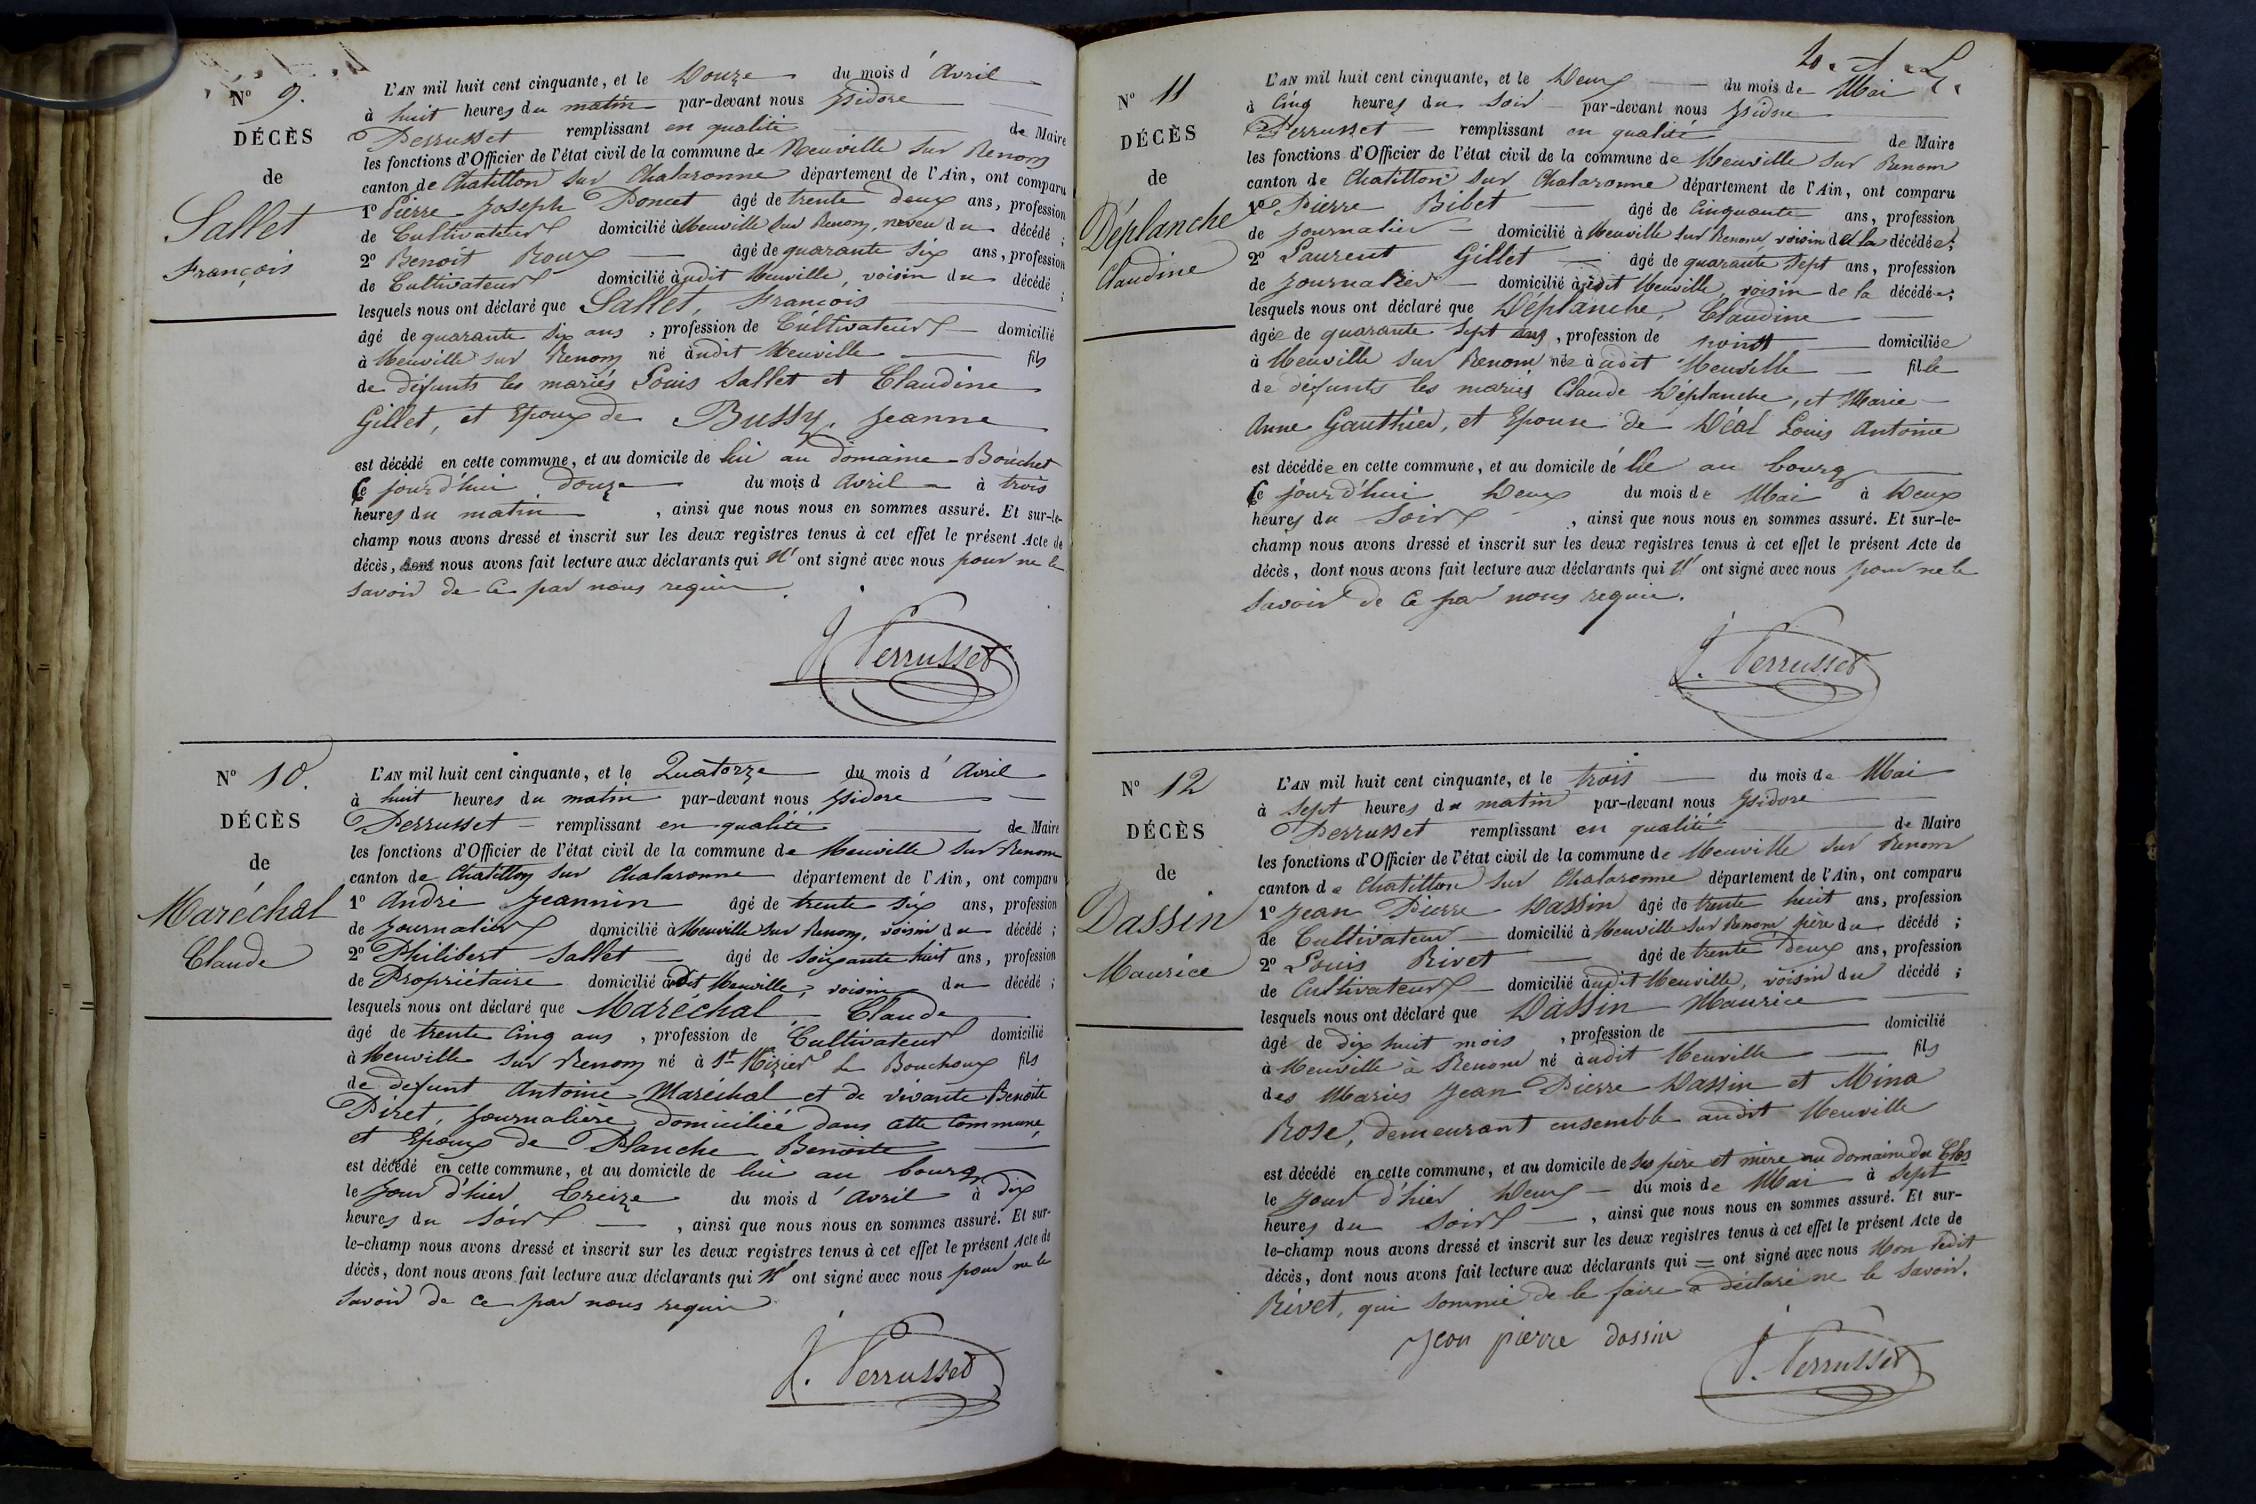 N° 9.
DÉCÈS
de
Sallet
François
L'AN mil huit cent cinquante, et le Douze du mois d'Avril
à huit heures du matin par-devant nous Isidore
Perrusset remplissant en qualité de Maire
les fonctions d'Officier de l'état civil de la commune de Neuville sur Renom
canton de Chatillon sur Chalaronne département de l'Ain, ont comparu
1° Pierre Joseph Poncet âgé de trente deux ans, profession
de Cultivateur domicilié à Neuville sur Renom, neveu du décédé ;
2° Benoît Roux âgé de quarante six ans, profession
de Cultivateur domicilié àudit Neuville, voisin du décédé ;
lesquels nous ont déclaré que Sallet, François
âgé de quarante six ans, profession de Cultivateur domicilié
à Neuville sur Renom né àudit Neuville fils
de défunts les mariés Louis Sallet et Claudine
Gillet, et Epoux de Bussy, Jeanne
est décédé en cette commune, et au domicile de lui au domaine Bouchet
Ce jourd'hui douze du mois d Avril à trois
heures du matin, ainsi que nous nous en sommes assuré. Et sur-le-
champ nous avons dressé et inscrit sur les deux registres tenus à cet effet le présent Acte de
décès, dont nous avons fait lecture aux déclarants qui n'ont signé avec nous pour ne le
savoir de ce par nous requis.
J. Perrusset
N° 10.
DÉCÈS
de
Maréchal
Claude
L'AN mil huit cent cinquante, et le Quatorze du mois d'Avril
à huit heures du matin par-devant nous Isidore
Perrusset remplissant en qualité de Maire
les fonctions d'Officier de l'état civil de la commune de Neuville sur Renom
canton de Chatillon sur Chalaronne département de l'Ain, ont comparu
1° André Jeannin âgé de trente six ans, profession
de Journalier domicilié à Neuville sur Renom, voisin du décédé ;
2° Philibert Sallet âgé de soixante huit ans, profession
de Propriétaire domicilié audit Neuville, voisin du décédé ;
lesquels nous ont déclaré que Maréchal, Claude
âgé de trente cinq ans, profession de Cultivateur domicilié
à Neuville sur Renom né à St Nizier le Bouchoux fils
de défunt Antoine Maréchal et de vivante Benoite
Piret, journalière domiciliée dans cette Commune,
et Epoux de Planche Benoite
est décédé en cette commune, et au domicile de lui au bourg
le jour d'hier treize du mois d'Avril à dix
heures du soir, ainsi que nous nous en sommes assuré. Et sur-
le-champ nous avons dressé et inscrit sur les deux registres tenus à cet effet le présent Acte de
décès, dont nous avons fait lecture aux déclarants qui n'ont signé avec nous pour ne le
savoir de ce par nous requis
J. Perrusset
N° 11
DÉCÈS
de
Déplanche
Claudine
L'AN mil huit cent cinquante, et le Deux du mois de Mai
à cinq heures du soir par-devant nous Isidore
Perrusset remplissant en qualité de Maire
les fonctions d'Officier de l'état civil de la commune de Neuville sur Renom
canton de Chatillon sur Chalaronne département de l'Ain, ont comparu
1° Pierre Bibet âgé de cinquante ans, profession
de journalier domicilié à Neuville sur Renom, voisin de la décédée ;
2° Laurent Gillet âgé de quarante sept ans, profession
de journalier domicilié àudit Neuville, voisin de la décédée ;
lesquels nous ont déclaré que Déplanche, Claudine
âgée de quarante sept ans, profession de point domiciliée
à Neuville sur Renom née àudit Neuville fille
de défunts les mariés Claude Déplanche, et Marie
Anne Gauthier, et Epouse de Déal Louis Antoine
est décédée en cette commune, et au domicile de elle au bourg
Ce jourd'hui Deux du mois de Mai à Deux
heures du soir, ainsi que nous nous en sommes assuré. Et sur-le-
champ nous avons dressé et inscrit sur les deux registres tenus à cet effet le présent Acte de
décès, dont nous avons fait lecture aux déclarants qui n'ont signé avec nous pour ne le
savoir de ce par nous requis.
J. Perrusset
N° 12
DÉCÈS
de
Dassin
Maurice
L'AN mil huit cent cinquante, et le trois du mois de Mai
à sept heures du matin par-devant nous Isidore
Perrusset remplissant en qualité de Maire
les fonctions d'Officier de l'état civil de la commune de Neuville sur Renom
canton de Chatillon sur Chalaronne département de l'Ain, ont comparu
1° Jean Pierre Dassin âgé de trente huit ans, profession
de Cultivateur domicilié à Neuville sur Renom père du décédé ;
2° Louis Rivet âgé de trente deux ans, profession
de Cultivateur domicilié àudit Neuville, voisin du décédé ;
lesquels nous ont déclaré que Dassin Maurice
âgé de dix huit mois, profession de domicilié
à Neuville à Renom né àudit Neuville fils
des Mariés Jean Pierre Dassin et Mina
Rose, demeurant ensemble audit Neuville
est décédé en cette commune, et au domicile de ses père et mère au domaine du Clos
le jour d'hier Deux du mois de Mai à sept
heures du soir, ainsi que nous nous en sommes assuré. Et sur-
le-champ nous avons dressé et inscrit sur les deux registres tenus à cet effet le présent Acte de
décès, dont nous avons fait lecture aux déclarants qui = ont signé avec nous Non ledit
Rivet, qui sommé de le faire a déclaré ne le savoir.
Jean pierre dassin
J. Perrusset